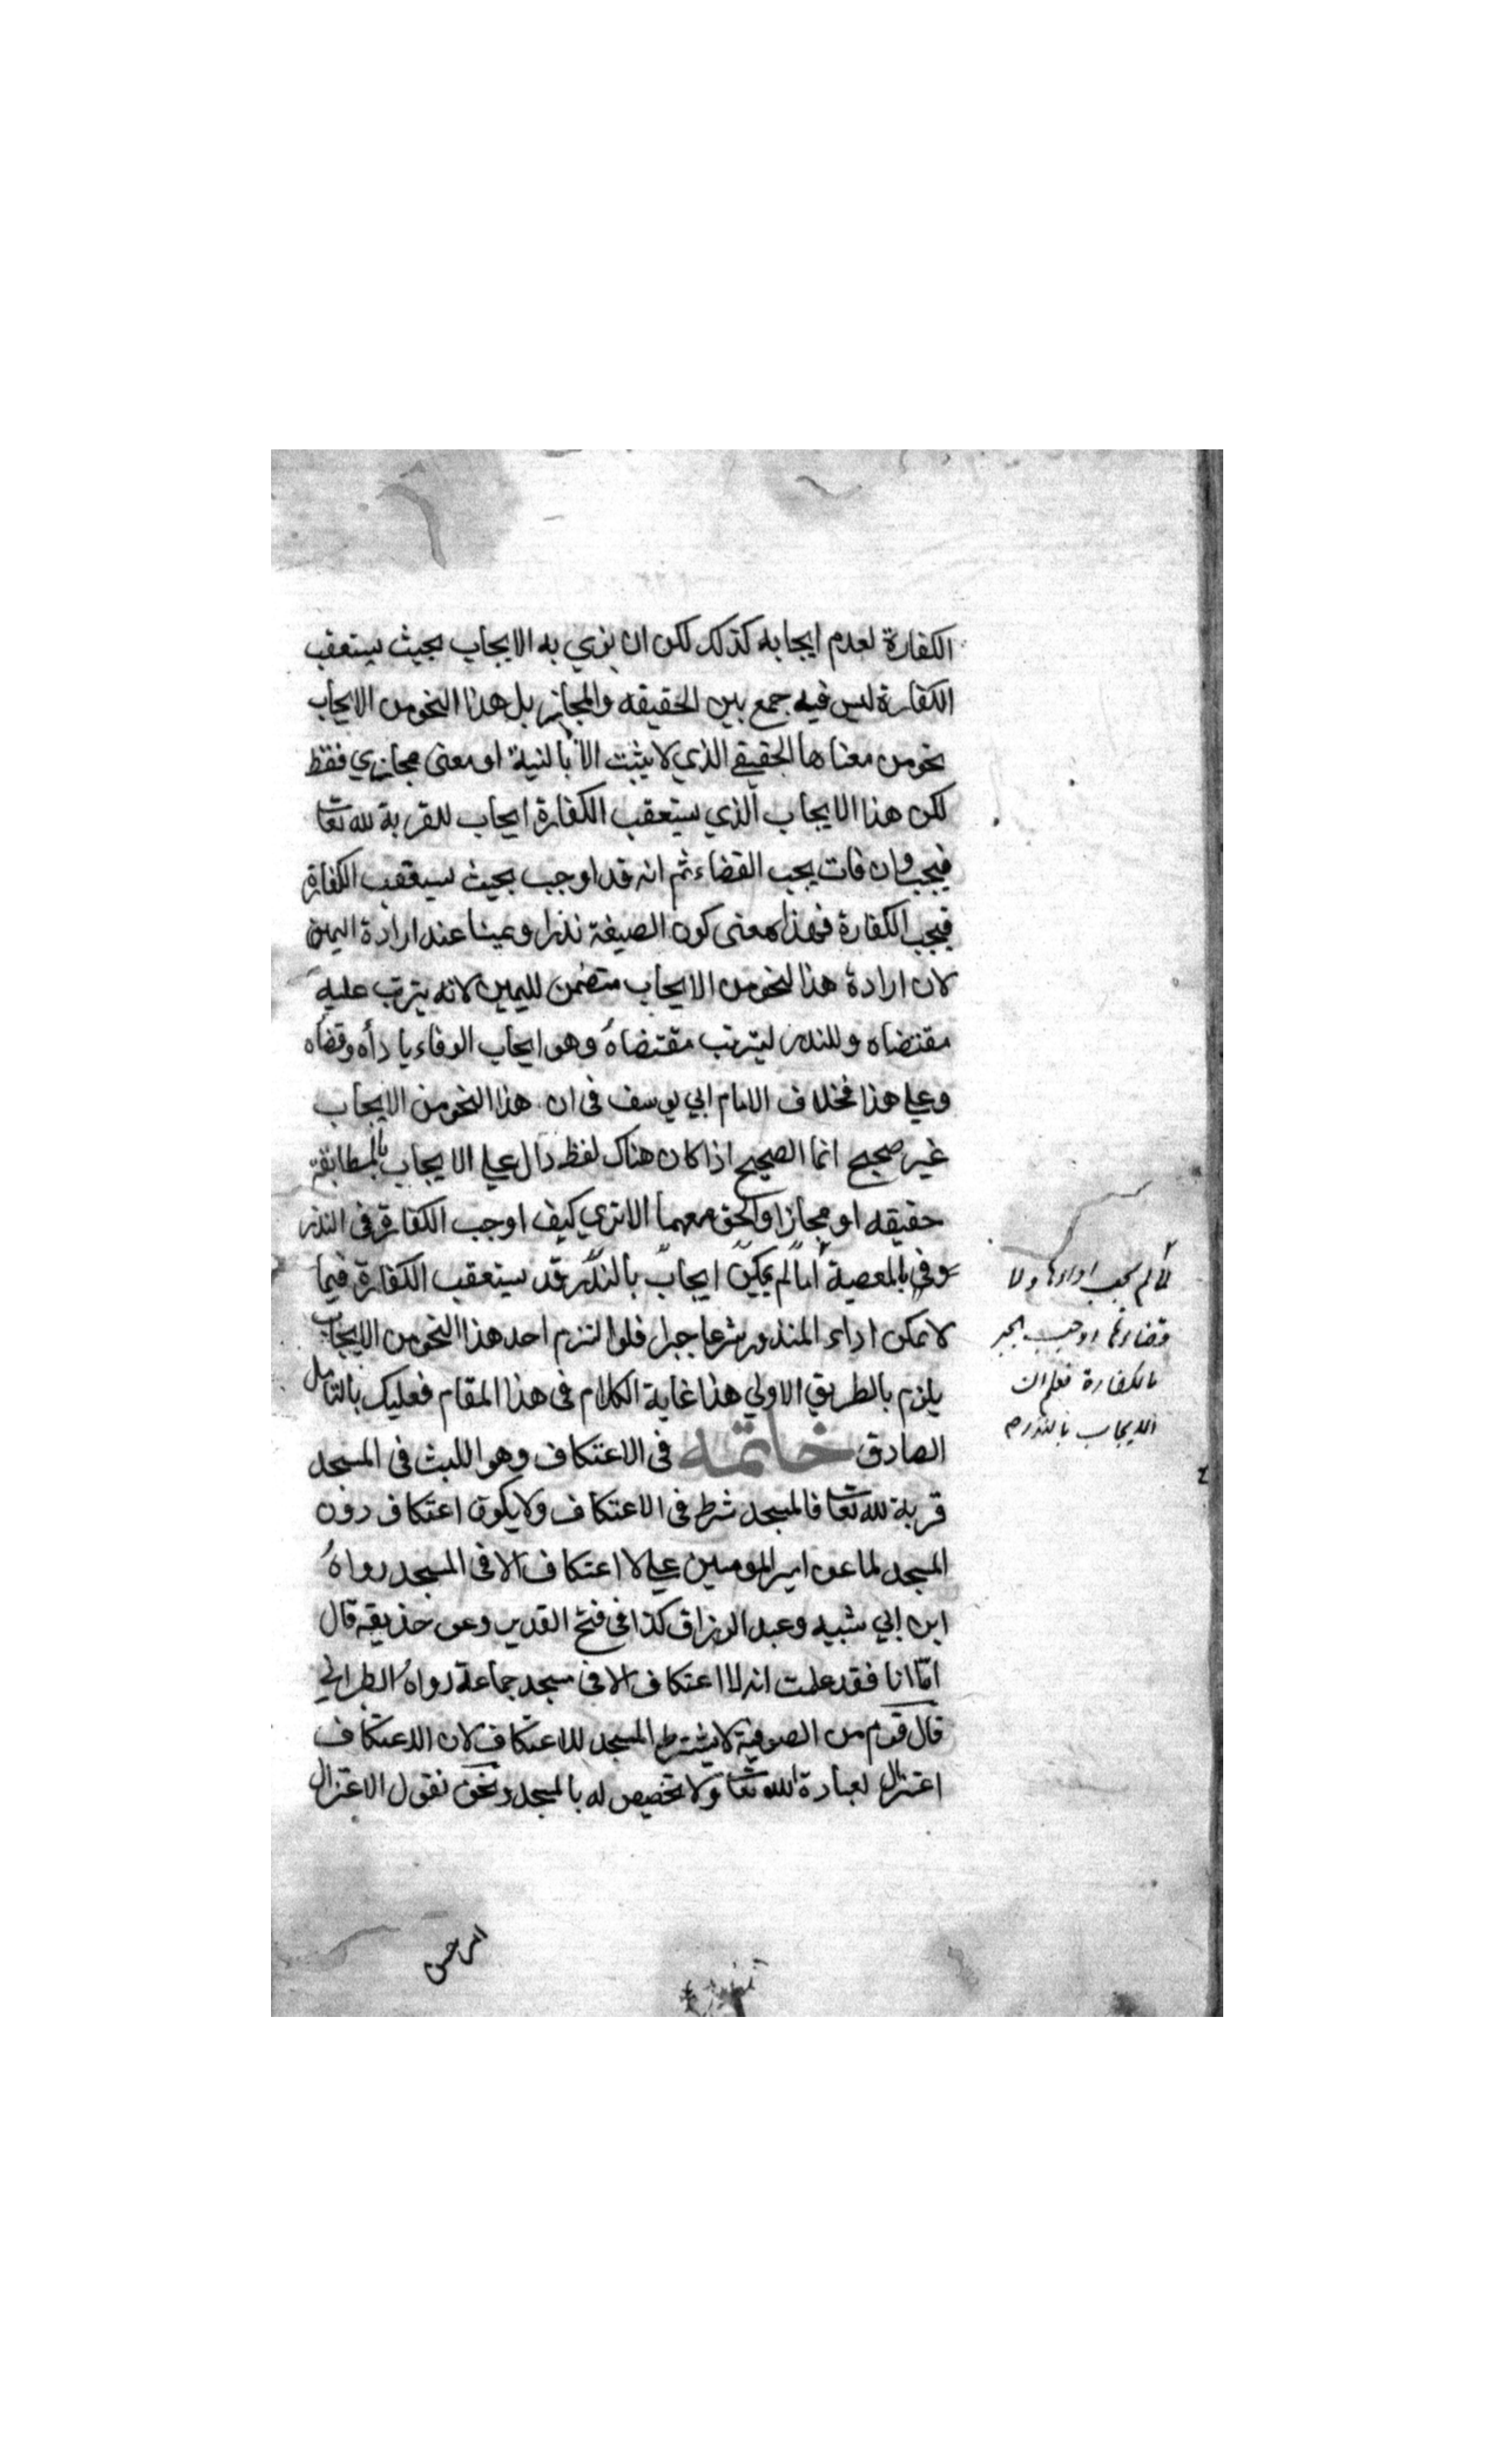 الكفارة لعدم ايجابه كذلك لكن ان نوي به الايجاب بحيث يستعقب
الكفارة ليس فيه جمع بين الحقيقه والمجاز بل هذا النحو من الايجاب
نحو من معناها الحقيقي الذي لا يثبت الا بالنية او معنى مجازي فقط
لكن هذا الايجاب الذي يستعقب الكفارة ايجاب للقربة لله تعا
فيجب وان فات يجب القضاء ثم انه قد اوجب بحيث يستعقب الكفارة
فيجب الكفارة فهذا معنى كون الصيغة نذرا ويمينا عند ارادة اليمين
لان ارادة هذا النحو من الايجاب متضمن لليمين لانه يترتب عليه
مقتضاه وللنذر ليترتب مقتضاه وهو ايجاب الوفاء بادأه وقضاه
وعلي هذا فخلاف الامام ابي يوسف فى ان هذا النحو من الايجاب
غير صحيح انما الصحيح اذا كان هناك لفظ دال علي الايجاب بالمطابقة
حقيقه او مجازا والحق معهما الا تري كيف اوجب الكفارة فى النذر
بالمعصية لم يمكن ايجاب بالنذر قد يستعقب الكفارة فيما
لا يمكن اداء المنذور شرعا جبرا فلو التزم احد هذا النحو من الايجاب
يلزم بالطريق الاولي هذا غاية الكلام فى هذا المقام فعليك بالتامل
الصادق خاتمه فى الاعتكاف وهو اللبث فى المسجد
قربة لله تعا فالمسجد شرط فى الاعتكاف ولا يكون اعتكاف دون
المسجد لما عن امير المومنين علي لا اعتكاف الا فى المسجد رواه
ابن ابي شيبه وعبد الرزاق كذا فى فتح القدير وعن حذيفه قال
امّا انا فقد علمت انه لا اعتكاف الا فى مسجد جماعة رواه الطبراني
قال قوم من الصوفية لا يشترط المسجد للاعتكاف لان الاعتكاف
اعتزال لعبادة الله تعا ولا تخصيص له بالمسجد ونحن نقول الاعتزال
لما لم يجب اداءها ولا
قضاءها اوجب الجبر
بالكفارة فعلم ان
الايجاب بالنذر